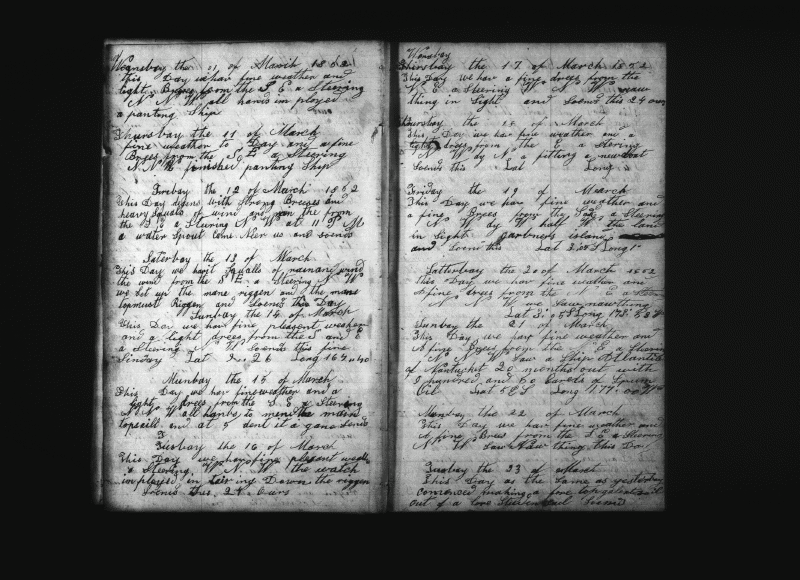 Wensday the 11 of March 1852
this Day we hav fine weather and
light Brees from the S E a Steering
N N W all hands imployed
a panting Ship
Thursday the 11 of March
fine weather to Day and a fine
Brees from the S E a Steering
N N W finished panting Ship
Friday the 12 of March 1852
this Day begins with Strong Breezes and
heavy Squalls of wind and rain the from
the S E a Sturing N W at 11 P M
a water Spout come Near us and soends
Saterday the 13 of March
This Day we havit Squalls of rain and wind
the wind from the S E a Steering N W
we Set up the mane riggen and the mane
topmust Riggen and Soends this Day
Sunday the 14 of March
This Day we hav fine pleasent weather
and a light drees from the S and E
a Steering N W Soends this fine
Sunday Lat 9 26 Long 167 40
Munday the 15 of March
This Day we hav fine weather and a
light drees from the S E a Sturing
N N W all hands to mend the main
topsaill and at 5 dent it a gane Sends
Tusday the 16 of March
This Day we hav fine plesant weath
a Steering W N W the watch
imployed in taring Down the riggen
Soends this 24 Ours
Wensday
Thirsday the 17 of March 1852
This Day we hav a fine drees from the
S E a Steering N W saw
thing in Sight and Soends this 24 ours
Thursday the 18 of March
This Day we hav fine weather and a
light drees from the E a Stering
N W by N a fitting a new boat
Soends this Lat Long
Friday the 19 of March
This Day we hav fine weather and
a fine Brees from the a Steering
N W by half W the land
in Sight garbners island
and Soends this Lat Long
Satterday the 20 of March 1852
This Day we hav fine weather and
a fine drees from the N E a Steern
N N W we Saw nowthing
Lat 3 01 S Long 178
Sunday the 21 of March
This Day we hav fine weather and
A fine Brees from S E a Steering
N N W Saw a Ship Atlantic
of Nantucket 20 months out with
hundred and 60 barels of Sprum
Oil Lat S Long 177
Monday the 22 of March
This Day we hav fine weather and
A fine Brees from the S E a Steering
N W Saw Now thing this Day
Tusday the 23 of March
This Day as the Same as yesterday
comenced making a fore
out of a love Steeren Sail Soends